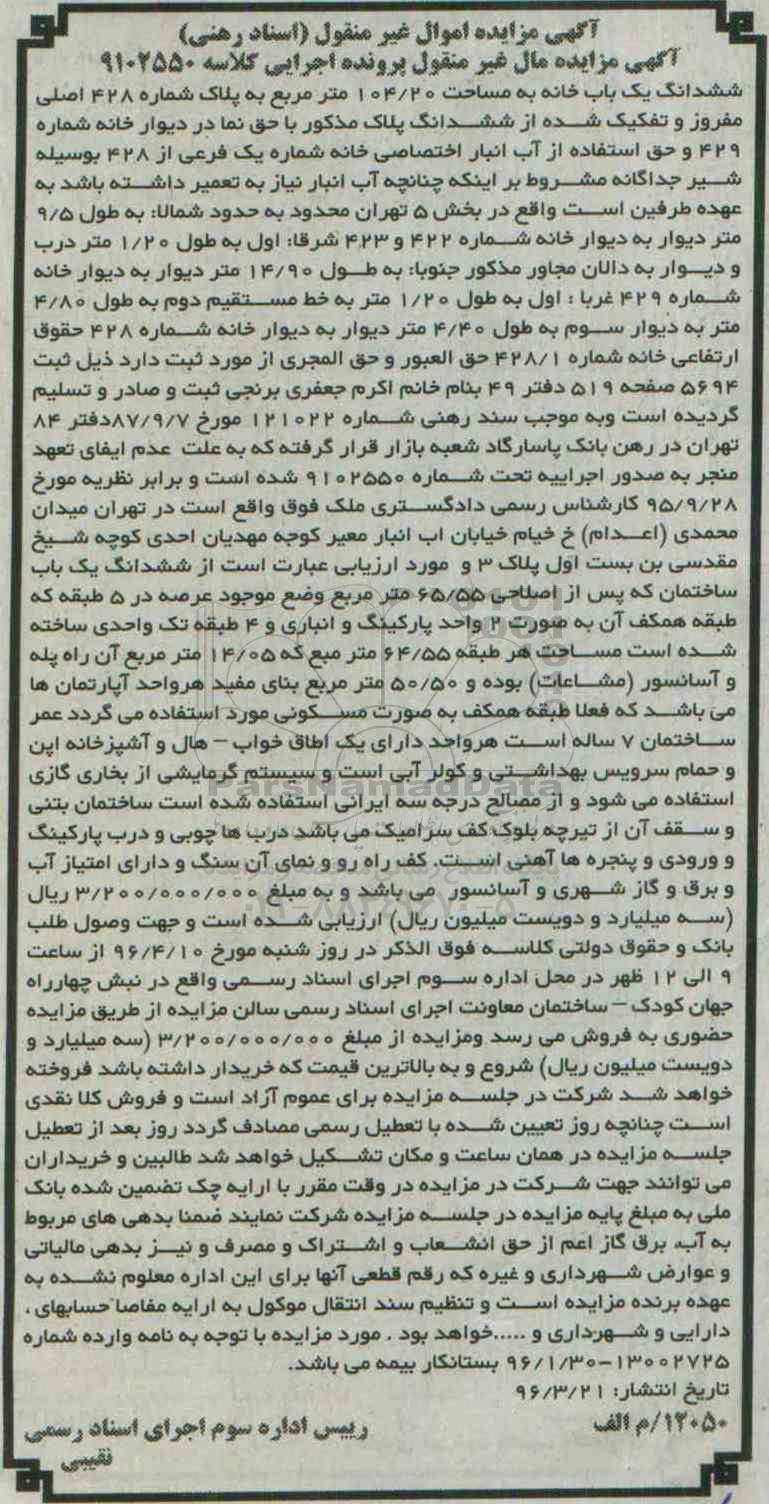 آگهی مزایده اموال غیر منقول (اسناد رهنی)
آگهی مزایده مال غیر منقول پرونده اجرایی کلاسه ۹۱۰۲۵۵۰
ششدانگ یک باب خانه به مساحت ۱۰۴/۲۰ متر مربع به پلاک شماره ۴۲۸ اصلی
مفروز و تفکیک شده از ششدانگ پلاک مذکور با حق نما در دیوار خانه شماره
۴۲۹ و حق استفاده از آب انبار اختصاصی خانه شماره یک فرعی از ۴۲۸ بوسیله
شیر جداگانه مشروط بر اینکه چنانچه آب انبار نیاز به تعمیر داشته باشد به
عهده طرفین است واقع در بخش ۵ تهران محدود به حدود شمالا: به طول ۹/۵
متر دیوار به دیوار خانه شماره ۴۲۲ و ۴۲۳ شرقا: اول به طول ۱/۲۰ متر درب
و دیوار به دالان مجاور مذکور جنوبا: به طول ۱۴/۹۰ متر دیوار به دیوار خانه
شماره ۴۲۹ غربا : اول به طول ۱/۲۰ متر به خط مستقیم دوم به طول ۴/۸۰
متر به دیوار سوم به طول ۴/۴۰ متر دیوار به دیوار خانه شماره ۴۲۸ حقوق
ارتفاعی خانه شماره ۴۲۸/۱ حق العبور و حق المجری از مورد ثبت دارد ذیل ثبت
۵۶۹۴ صفحه ۵۱۹ دفتر ۴۹ بنام خانم اکرم جعفری برنجی ثبت و صادر و تسلیم
گردیده است وبه موجب سند رهنی شماره ۱۲۱۰۲۲ مورخ ۸۷/۹/۷دفتر ۸۴
تهران در رهن بانک پاسارگاد شعبه بازار قرار گرفته که به علت عدم ایفای تعهد
منجر به صدور اجراییه تحت شماره ۹۱۰۲۵۵۰ شده است و برابر نظریه مورخ
۹۵/۹/۲۸ کارشناس رسمی دادگستری ملک فوق واقع است در تهران میدان
محمدی (اعدام) خ خیام خیابان اب انبار معیر کوجه مهدیان احدی کوچه شیخ
مقدسی بن بست اول پلاک ۳ و مورد ارزیابی عبارت است از ششدانگ یک باب
ساختمان که پس از اصلاحی ۶۵/۵۵ متر مربع وضع موجود عرصه در ۵ طبقه که
طبقه همکف آن به صورت ۲ واحد پارکینگ و انباری و ۴ طبقه تک واحدی ساخته
شده است مساحت هر طبقه ۶۴/۵۵ متر مبع که ۱۴/۰۵ متر مربع آن راه پله
و آسانسور (مشاعات) بوده و ۵۰/۵۰ متر مربع بنای مفید هرواحد آپارتمان ها
می باشد که فعلا طبقه همکف به صورت مسکونی مورد استفاده می گردد عمر
ساختمان ۷ ساله است هرواحد دارای یک اطاق خواب – هال و آشپزخانه اپن
و حمام سرویس بهداشتی و کولر آبی است و سیستم گرمایشی از بخاری گازی
استفاده می شود و از مصالح درجه سه ایرانی استفاده شده است ساختمان بتنی
و سقف آن از تیرچه بلوک کف سرامیک می باشد درب ها چوبی و درب پارکینگ
و ورودی و پنجره ها آهنی است. کف راه رو و نمای آن سنگ و دارای امتیاز آب
و برق و گاز شهری و آسانسور می باشد و به مبلغ ۳/۲۰۰/۰۰۰/۰۰۰ ریال
(سه میلیارد و دویست میلیون ریال) ارزیابی شده است و جهت وصول طلب
بانک و حقوق دولتی کلاسه فوق الذکر در روز شنبه مورخ ۹۶/۴/۱۰ از ساعت
۹ الی ۱۲ ظهر در محل اداره سوم اجرای اسناد رسمی واقع در نبش چهارراه
جهان کودک – ساختمان معاونت اجرای اسناد رسمی سالن مزایده از طریق مزایده
حضوری به فروش می رسد ومزایده از مبلغ ۳/۲۰۰/۰۰۰/۰۰۰ (سه میلیارد و
دویست میلیون ریال) شروع و به بالاترین قیمت که خریدار داشته باشد فروخته
خواهد شد شرکت در جلسه مزایده برای عموم آزاد است و فروش کلا نقدی
است چنانچه روز تعیین شده با تعطیل رسمی مصادف گردد روز بعد از تعطیل
جلسه مزایده در همان ساعت و مکان تشکیل خواهد شد طالبین و خریداران
می توانند جهت شرکت در مزایده در وقت مقرر با ارایه چک تضمین شده بانک
ملی به مبلغ پایه مزایده در جلسه مزایده شرکت نمایند ضمنا بدهی های مربوط
به آب، برق گاز اعم از حق انشعاب و اشتراک و مصرف و نیز بدهی مالیاتی
و عوارض شهرداری و غیره که رقم قطعی آنها برای این اداره معلوم نشده به
عهده برنده مزایده است و تنظیم سند انتقال موکول به ارایه مفاصا حسابهای ،
دارایی و شهرداری و .....خواهد بود . مورد مزایده با توجه به نامه وارده شماره
۱۳۰۰۲۷۲۵-۹۶/۱/۳۰ بستانکار بیمه می باشد.
تاریخ انتشار: ۹۶/۳/۲۱
۱۲۰۵۰/م الف
رییس اداره سوم اجرای اسناد رسمی
نقیبی
ParsNamadData